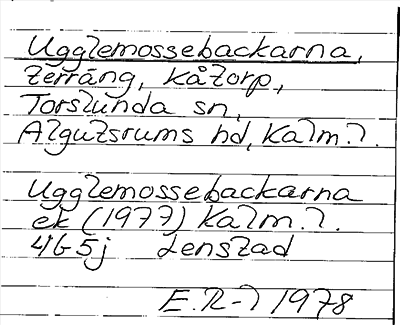 Ugglemossebackarna,
terräng, Kåtorp,
Torslunda sn,
Algutsrums hd, Kalm.l.
Ugglemossebackarna
ek (1977) Kalm.l.
4G5j Lenstad
E.R-l 1978